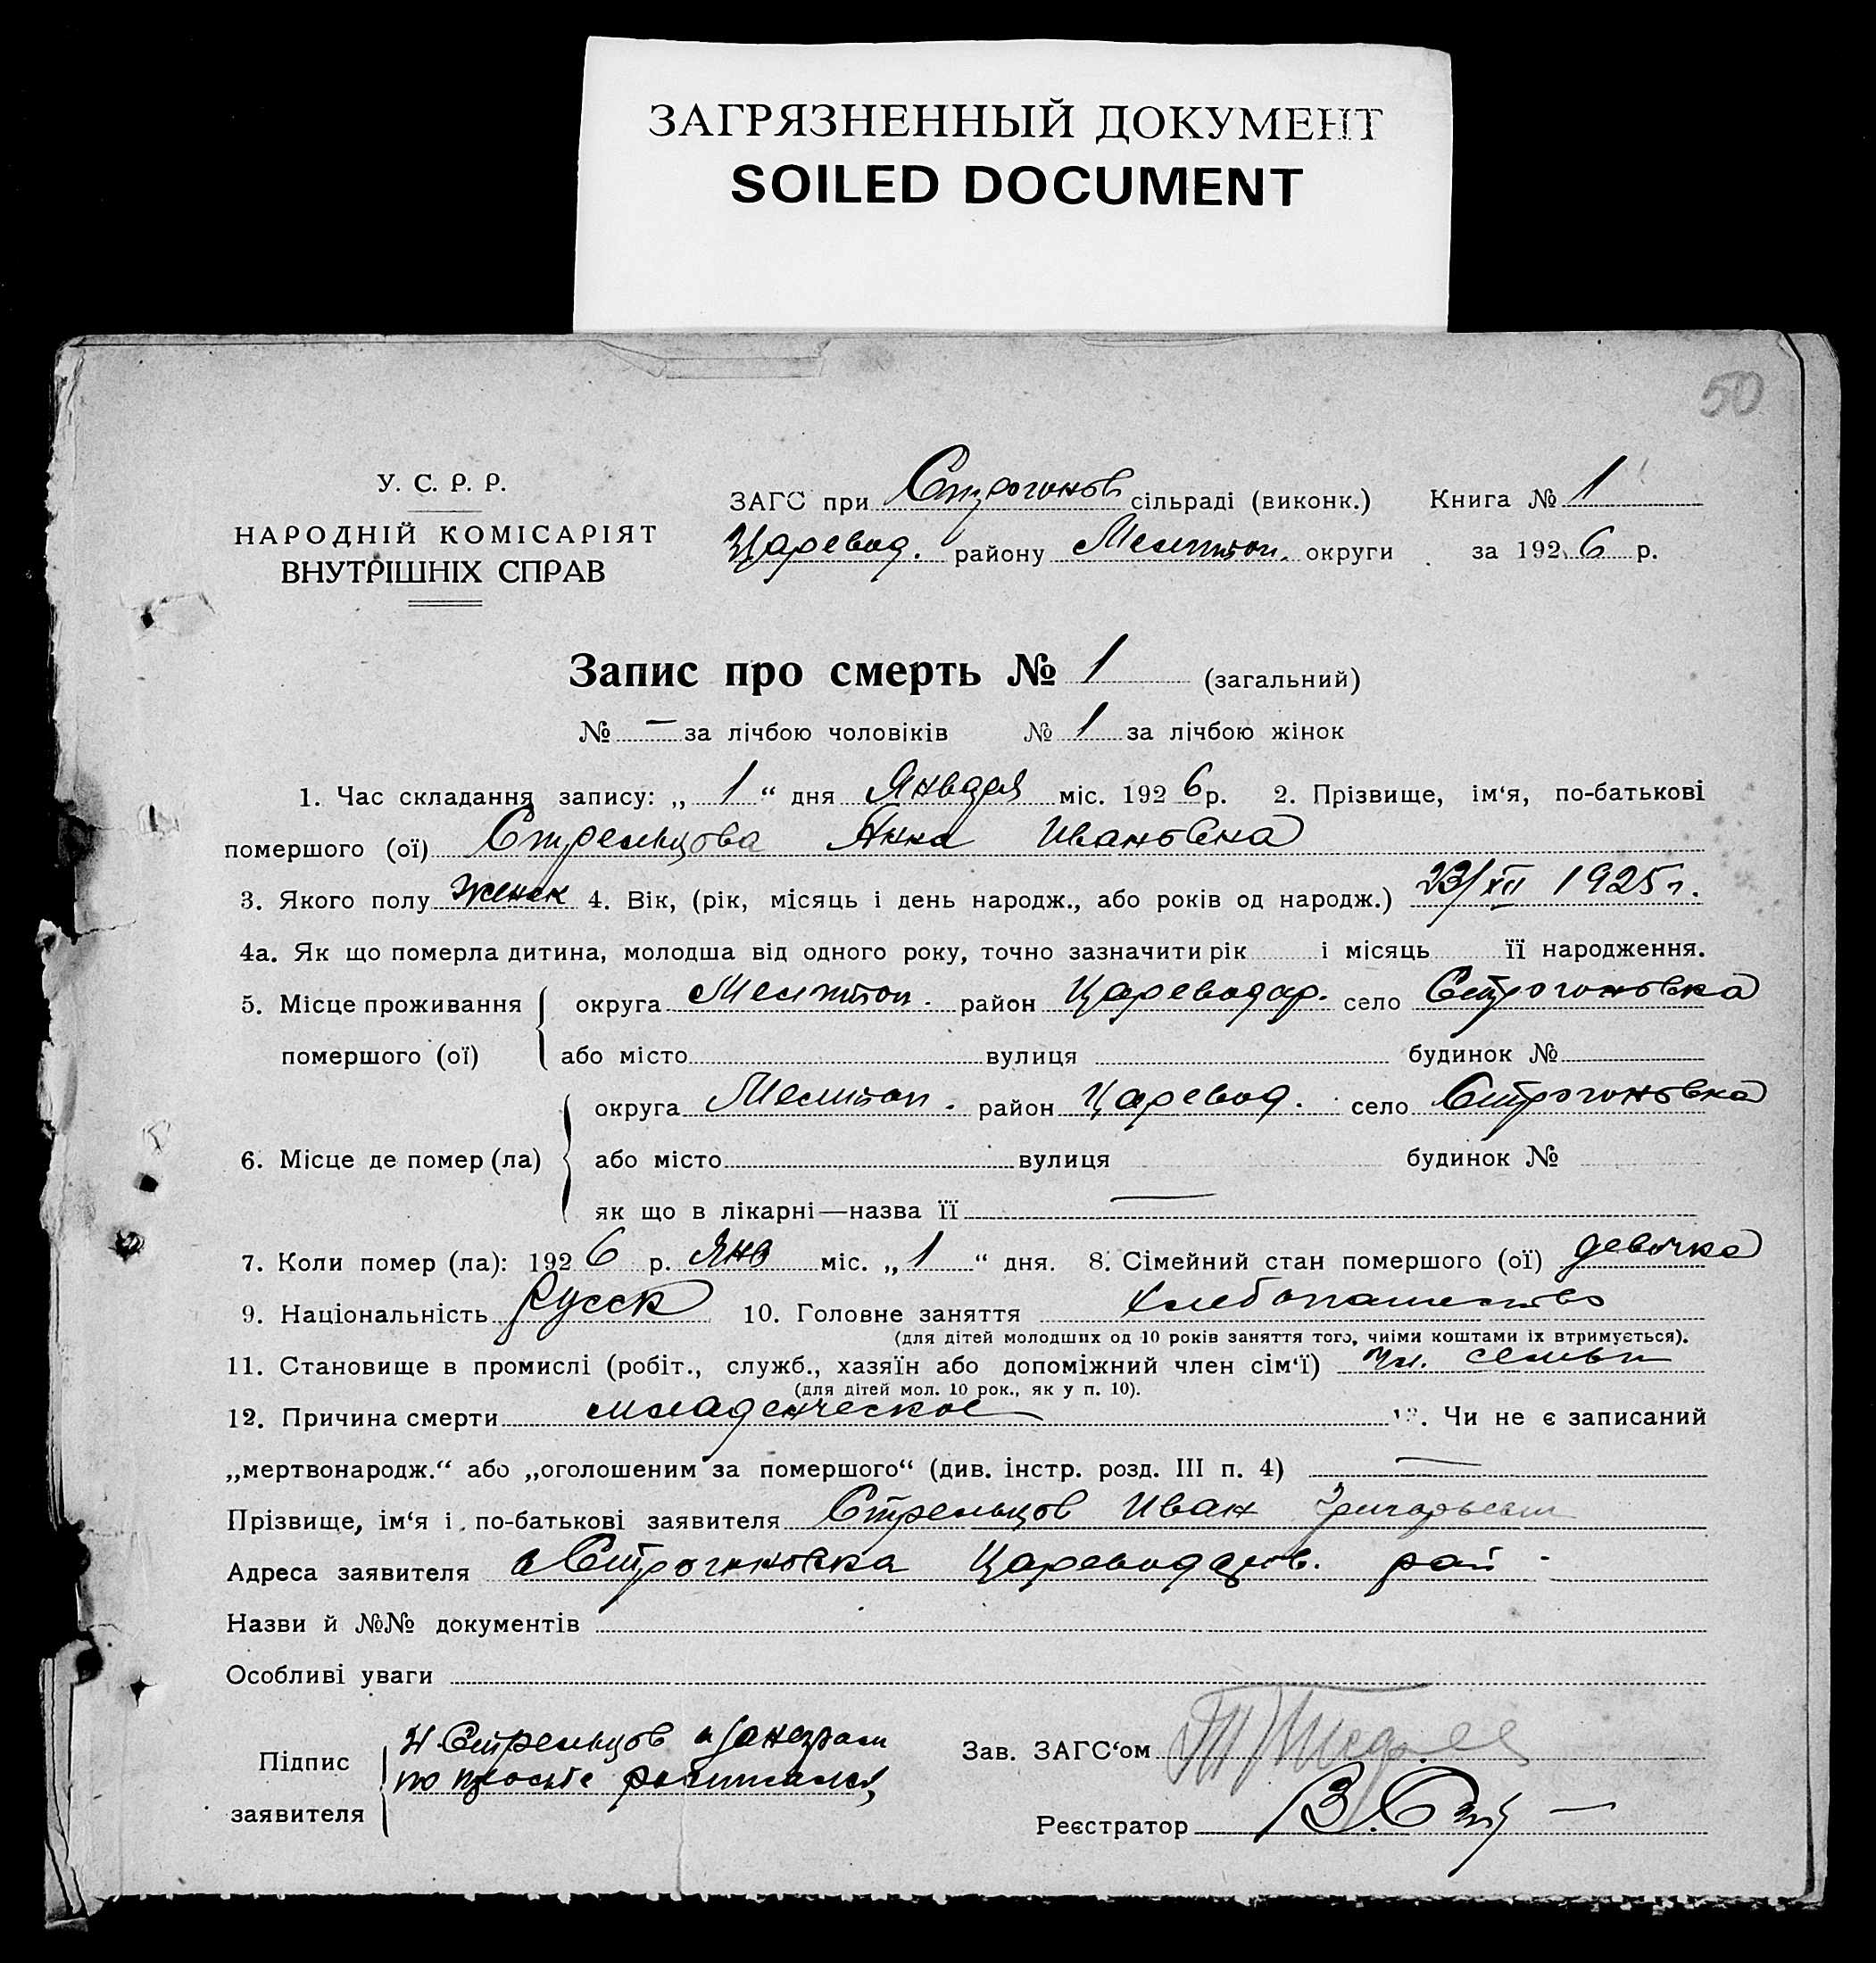 ЗАГРЯЗНЕННЫЙ ДОКУМЕНТ
SOILED DOCUMENT
50
У. С. Р. Р.
НАРОДНІЙ КОМІСАРІЯТ
ВНУТРІШНІХ СПРАВ
ЗАГС при Строгонов сільраді (виконк.) Книга № 1
Царевод. району Мелитоп. округи за 1926 р.
Запис про смерть № 1 (загальний)
№ — за лічбою чоловіків № 1 за лічбою жінок
1. Час складання запису: „ 1 “ дня Января міс. 1926 р. 2. Прізвище, ім‘я, по-батькові
помершого (ої) Стрельцова Анна Ивановна
3. Якого полу женск 4. Вік, (рік, місяць і день народж., або років од народж.) 23/XII 1925 г.
4а. Як що померла дитина, молодша від одного року, точно зазначити рік і місяць її народження.
5. Місце проживання помершого (ої) округа Мелитоп. район Цареводар. село Строгоновка
або місто вулиця будинок №
6. Місце де помер (ла) округа Мелитоп. район Царевод. село Строгоновка
або місто вулиця будинок №
як що в лікарні—назва її —
7. Коли помер (ла): 1926 р. Янв міс. „ 1 “ дня. 8. Сімейний стан помершого (ої) девочка
9. Національність русск 10. Головне заняття хлебопашество
(для дітей молодших од 10 років заняття того, чиїми коштами їх втримується).
11. Становище в промислі (робіт., служб., хазяїн або допоміжний член сім‘ї) чл. семьи
(для дітей мол. 10 рок., як у п. 10).
12. Причина смерти младенческое 13. Чи не є записаний
„мертвонародж.“ або „оголошеним за помершого“ (див. інстр. розд. III п. 4) —
Прізвище, ім‘я і по-батькові заявителя Стрельцов Иван Григорьевич
Адреса заявителя с Строгоновка Цареводаров. рай.
Назви й №№ документів
Особливі уваги
Підпис заявителя И Стрельцов а за неграм
по просьбе росписался
Зав. ЗАГС‘ом
Реєстратор